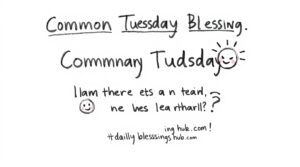 Common Tuesday Blessing.
Commnary Tudsday
llam there ets a n teard,
ne ves leartharll??
ing hub. com!
#dailly blesssings hub.com